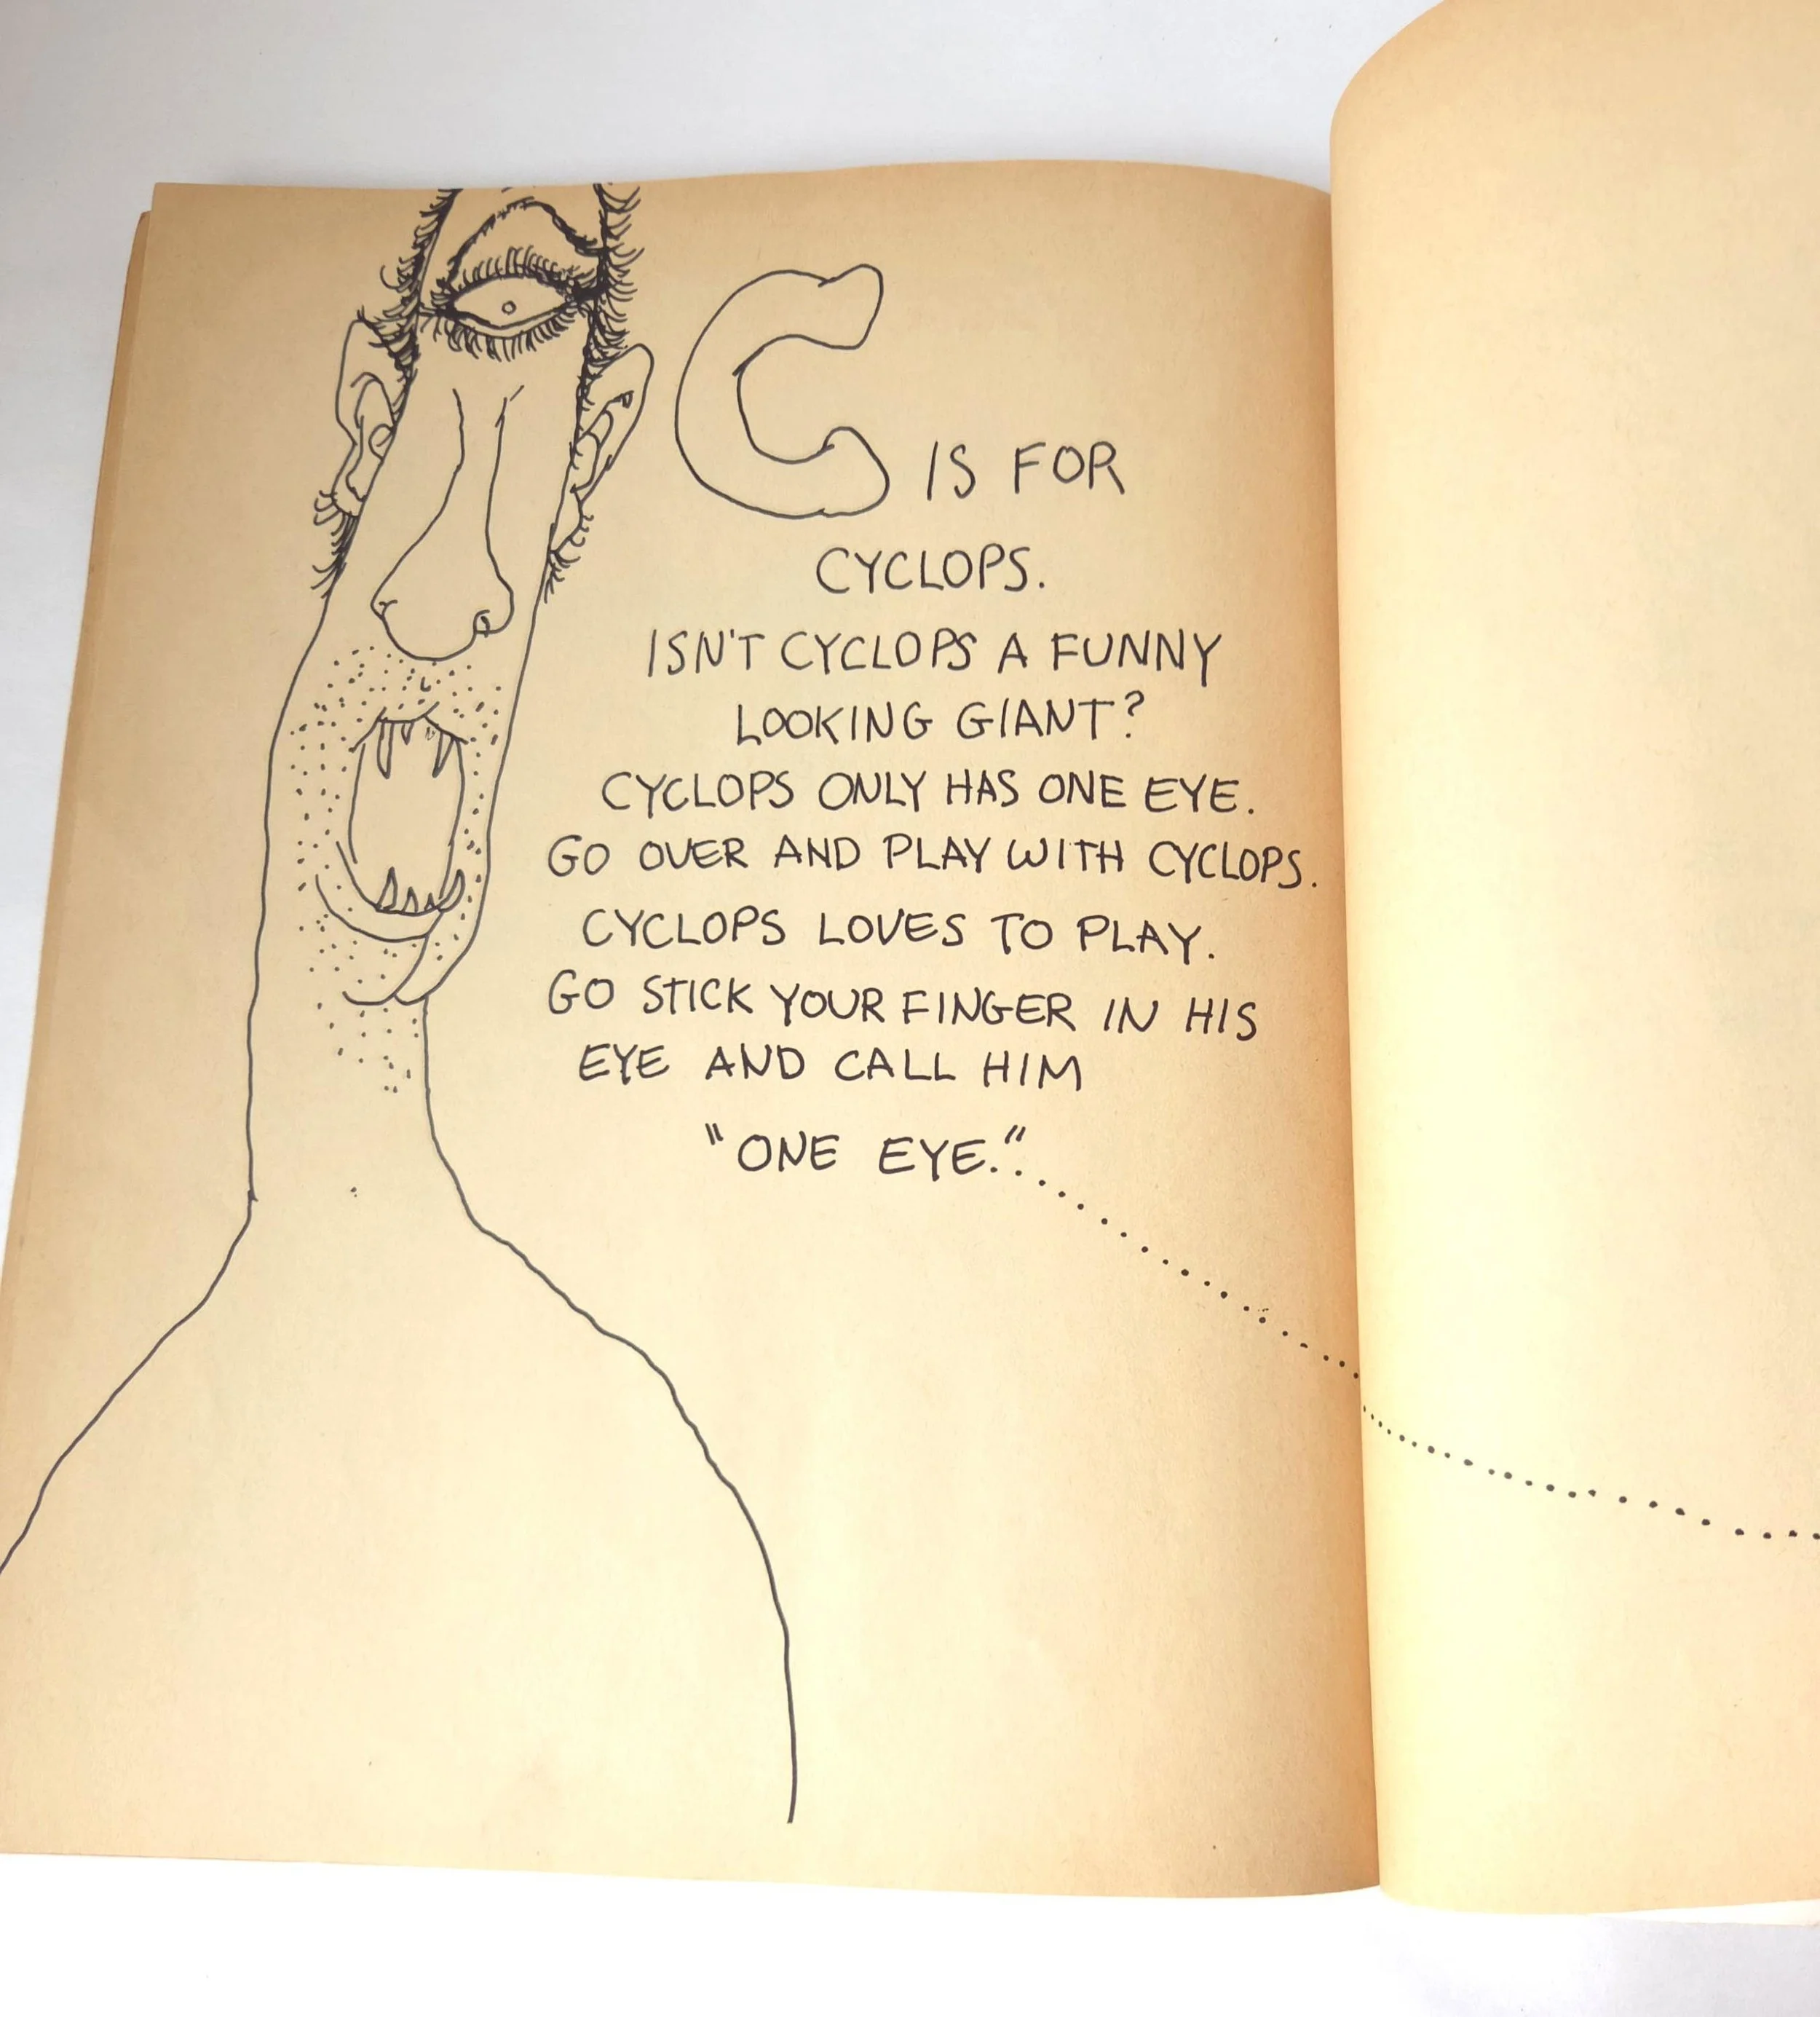 C IS FOR
CYCLOPS.
ISN'T CYCLOPS A FUNNY
LOOKING GIANT?
CYCLOPS ONLY HAS ONE EYE.
GO OVER AND PLAY WITH CYCLOPS.
CYCLOPS LOVES TO PLAY.
GO STICK YOUR FINGER IN HIS
EYE AND CALL HIM
"ONE EYE."